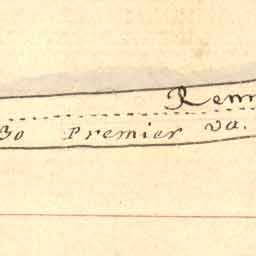 Renn
30 Premier va.